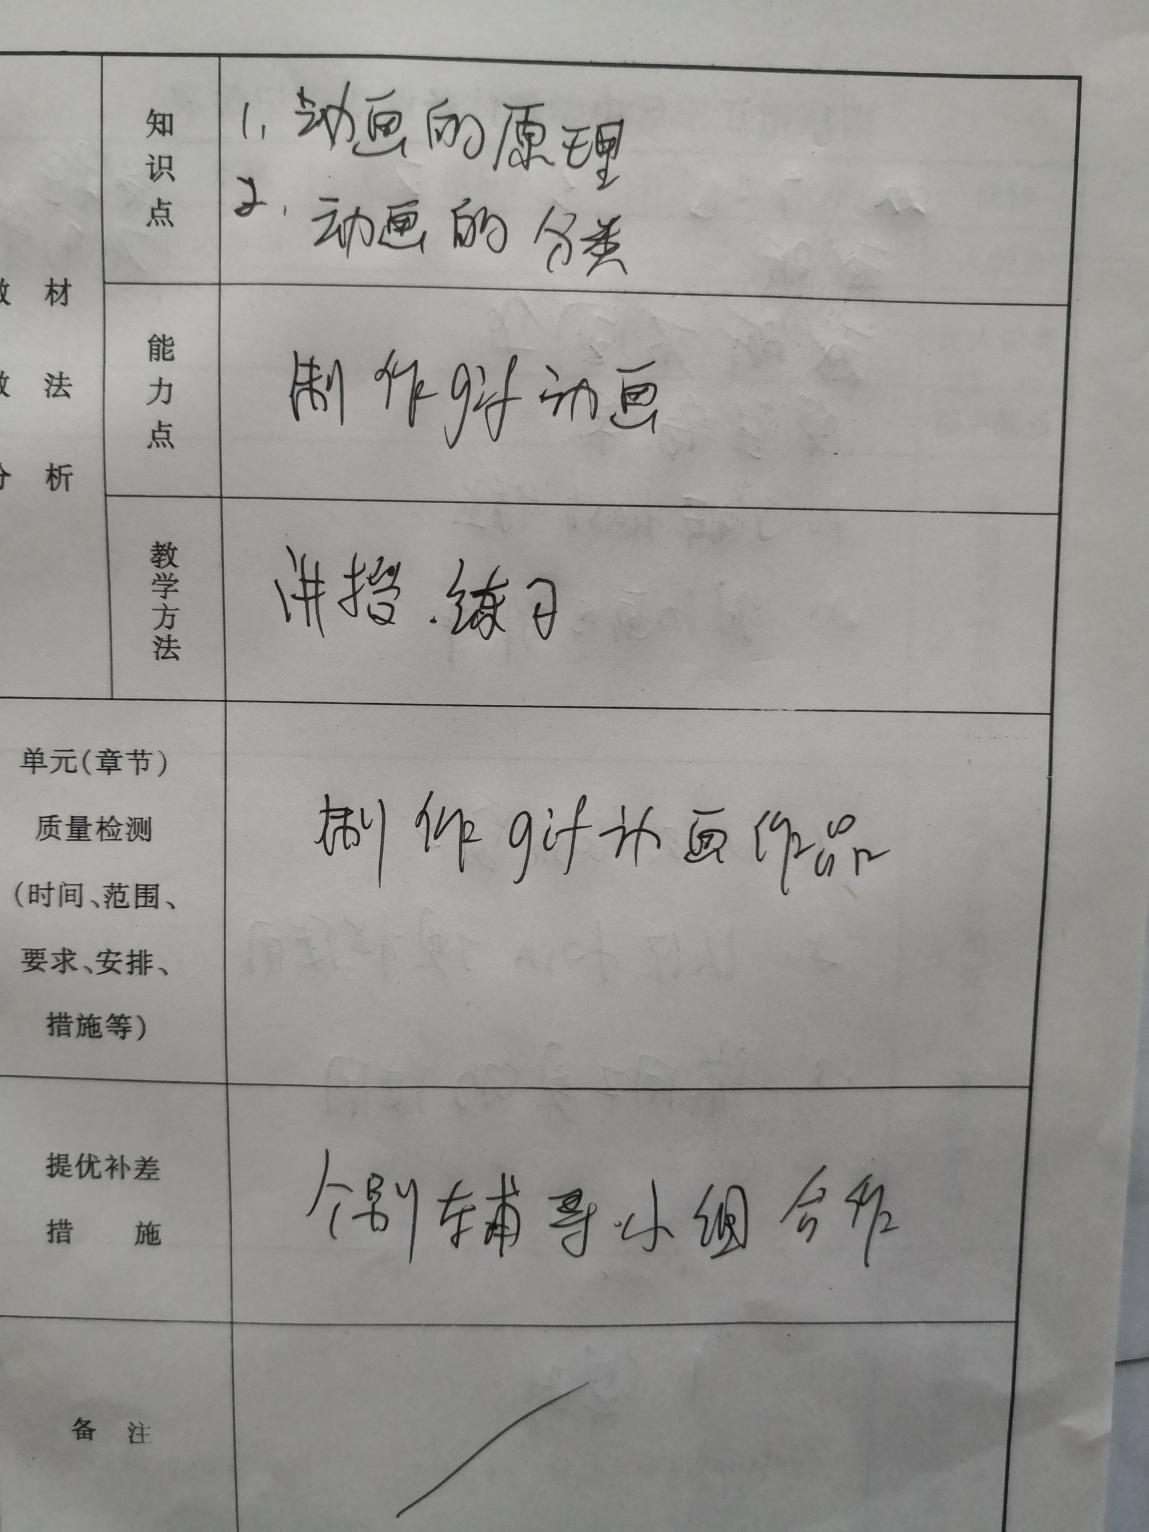 知识点
1. 动画的原理
2. 动画的分类
教材
教法
分析
能力点
制作gif动画
教学方法
讲授.练习
单元(章节)
质量检测
(时间、范围、
要求、安排、
措施等)
制作gif动画作品
提优补差
措 施
个别辅导.小组合作
备 注